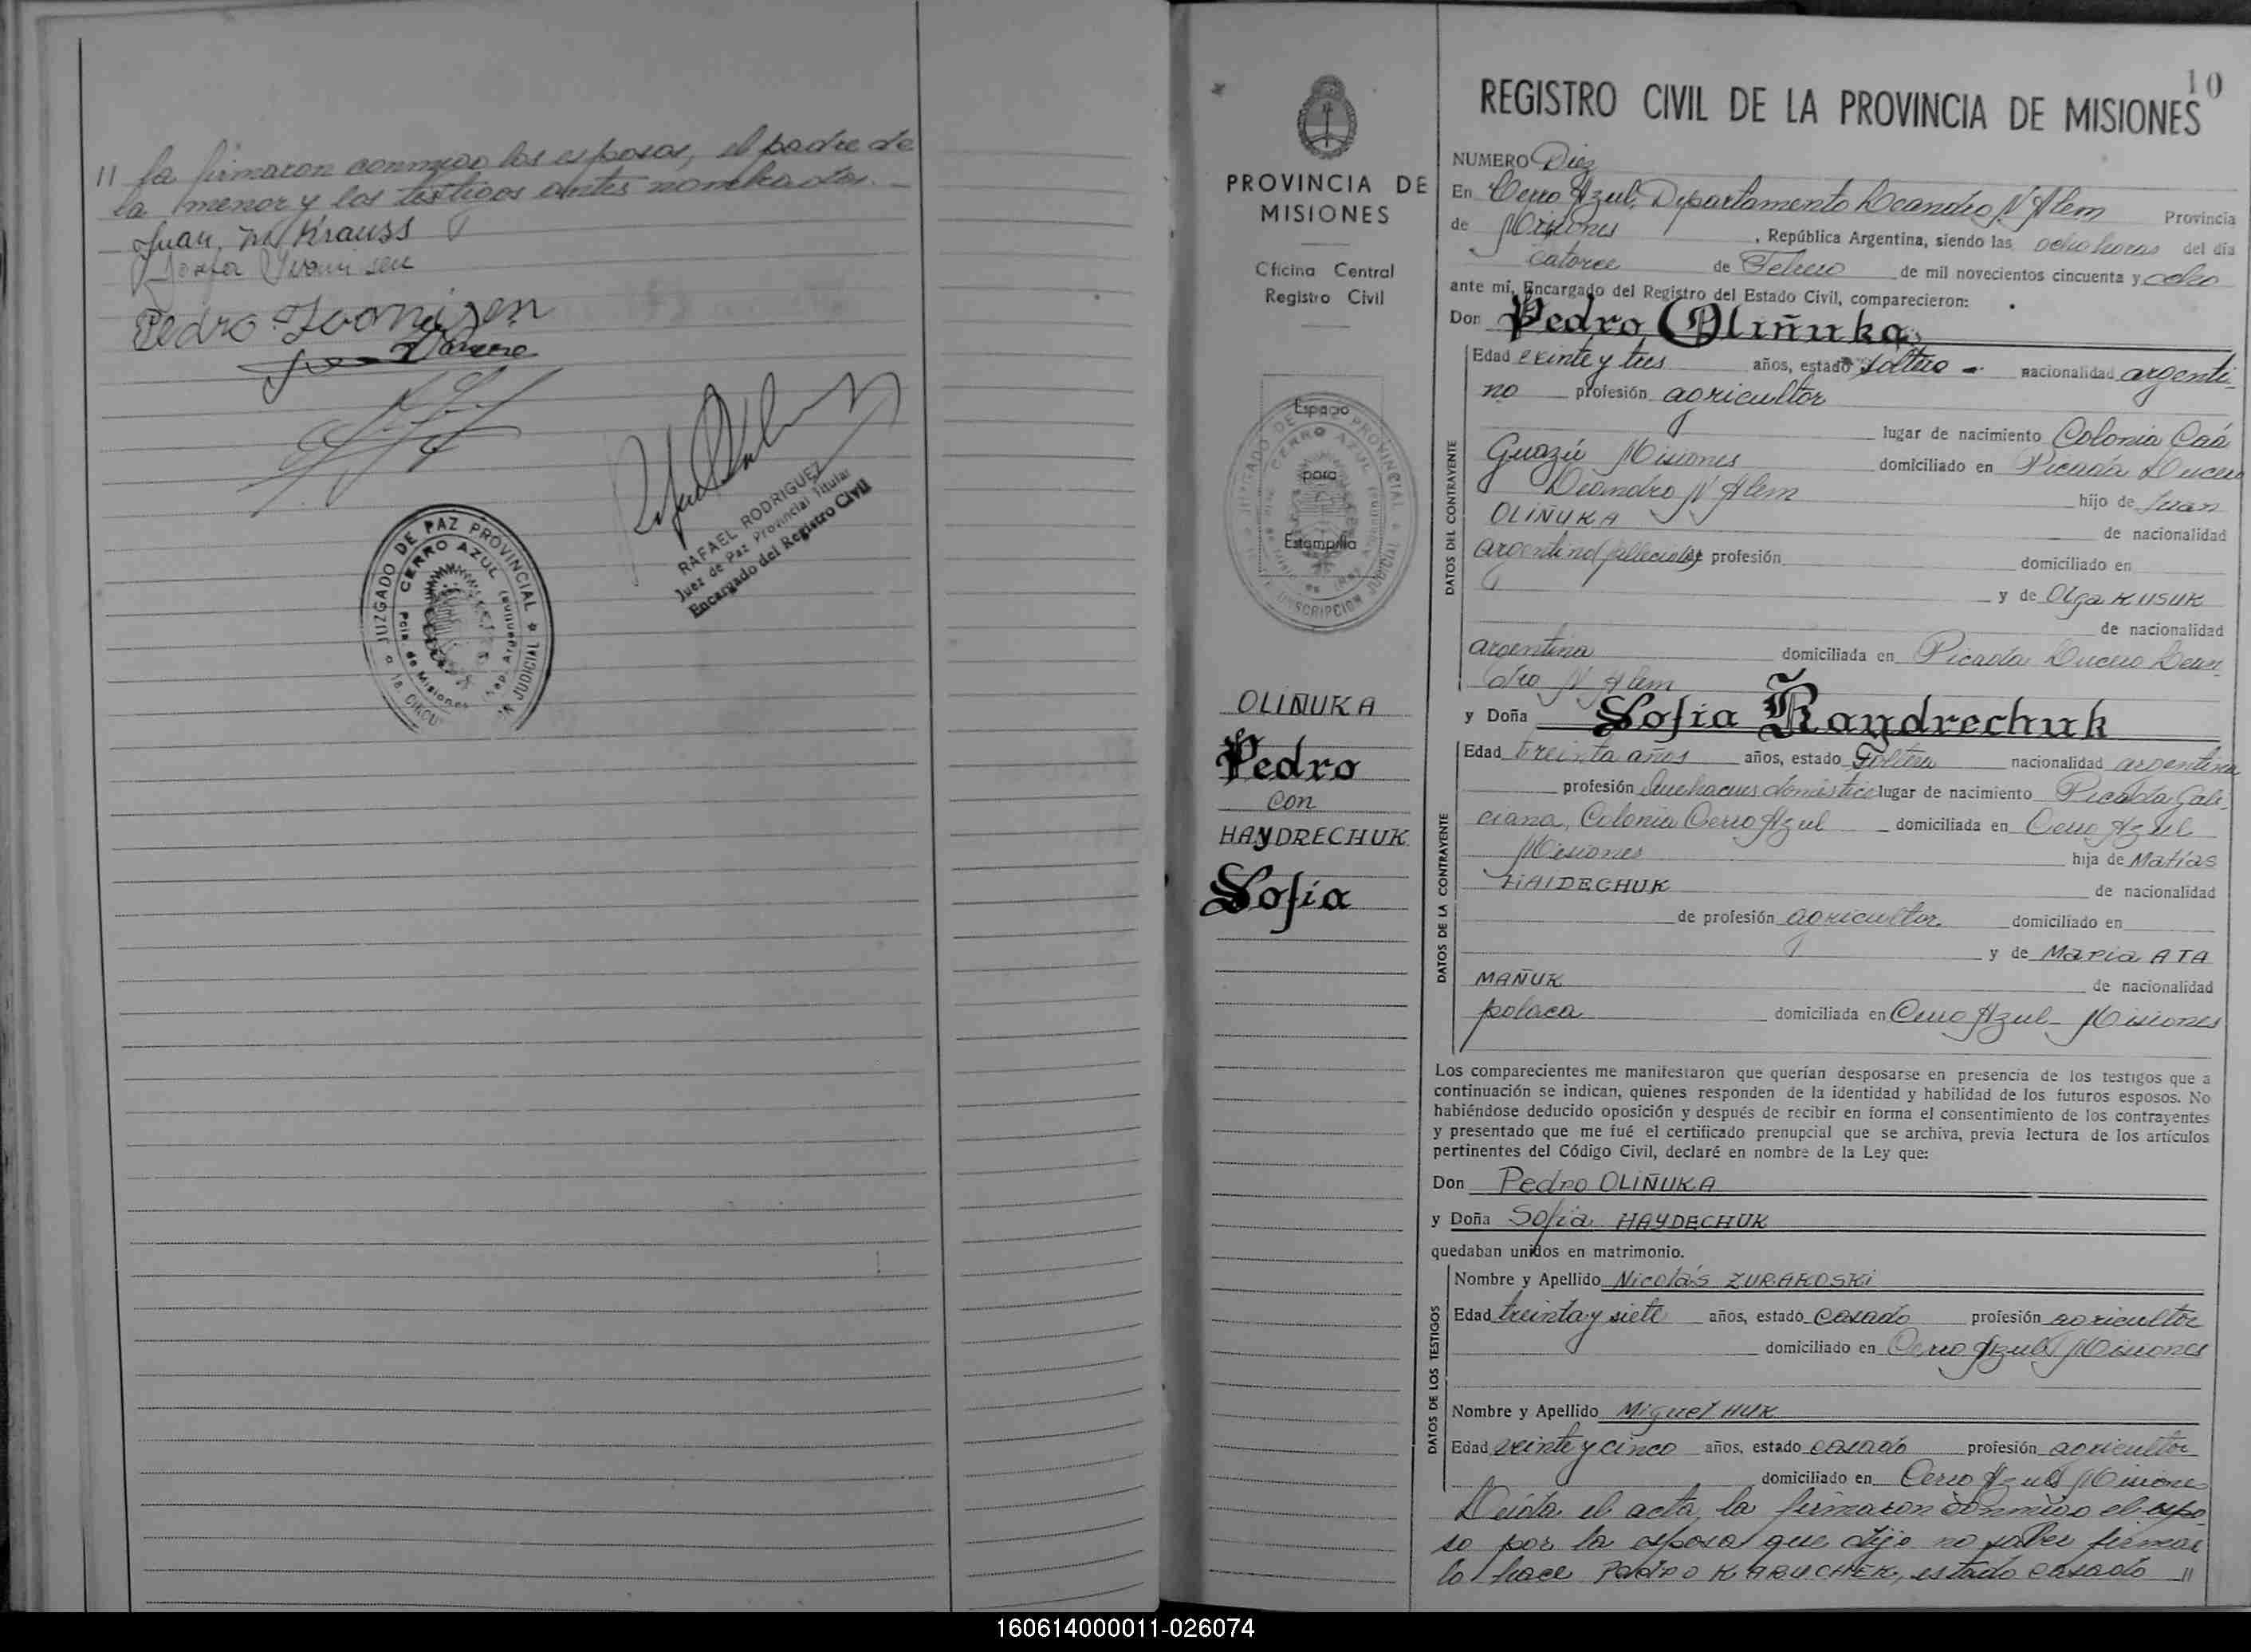 11 la firmaron conmigo los esposos, el padre de
la menor y los testigos antes nombrados.-
Juan, M. Krauss
Pedro
RAFAEL RODRIGUEZ
Juez de Paz Provincial Titular
Encargado del Registro Civil
JUZGADO DE PAZ PROVINCIAL
CERRO AZUL
Pcia de Misiones
JUDICIAL
PROVINCIA DE
MISIONES
Oficina Central
Registro Civil
Espacio
para
Estampilla
JUZGADO DE PROVINCIAL
CERRO AZUL
CIRCUNSCRIPCION JUDICIAL
OLIÑUKA
Pedro
con
HAYDRECHUK
Sofia
10
REGISTRO CIVIL DE LA PROVINCIA DE MISIONES
NUMERO Diez
En Cerro Azul, Departamento Leandro N Alem Provincia
de Misiones, República Argentina, siendo las ocho horas del día
catorce de Febrero de mil novecientos cincuenta y ocho
ante mi, Encargado del Registro del Estado Civil, comparecieron:
Don Pedro Oliñuka
DATOS DEL CONTRAYENTE
Edad veinte y tres años, estado soltero - nacionalidad argenti-
no profesión agricultor
lugar de nacimiento Colonia Caá
Guazú Misiones domiciliado en Picada Lucero
Leandro N Alem hijo de Juan
OLIÑUKA de nacionalidad
argentino fallecido de profesión domiciliado en
y de Olga KUSUK
de nacionalidad
argentina domiciliada en Picada Lucero Lean
dro N Alem
y Doña Sofia Haydrechuk
DATOS DE LA CONTRAYENTE
Edad treinta años años, estado soltera nacionalidad argentina
profesión quehaceres domesticos lugar de nacimiento Picada Gali-
ciana, Colonia Cerro Azul domiciliada en Cerro Azul
Misiones hija de Matías
HAIDECHUK de nacionalidad
de profesión agricultor domiciliado en
y de Maria ATA
MAÑUK de nacionalidad
polaca domiciliada en Cerro Azul - Misiones
Los comparecientes me manifestaron que querían desposarse en presencia de los testigos que a
continuación se indican, quienes responden de la identidad y habilidad de los futuros esposos. No
habiéndose deducido oposición y después de recibir en forma el consentimiento de los contrayentes
y presentado que me fué el certificado prenupcial que se archiva, previa lectura de los artículos
pertinentes del Código Civil, declaré en nombre de la Ley que:
Don Pedro OLIÑUKA
y Doña Sofia HAYDECHUK
quedaban unidos en matrimonio.
DATOS DE LOS TESTIGOS
Nombre y Apellido Nicolás ZURAKOSKI
Edad treinta y siete años, estado casado profesión agricultor
domiciliado en Cerro Azul Misiones
Nombre y Apellido Miguel HUK
Edad veinte y cinco años, estado casado profesión agricultor
domiciliado en Cerro Azul Misiones
Leida el acta, la firmaron conmigo el espo-
so por la esposa que dijo no saber firmar
lo hace PEDRO KABUCHEK, estado casado 11
160614000011-026074